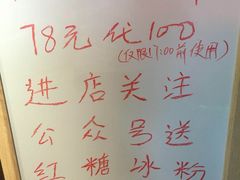 78元代100
(仅限17:00前使用)
进店关注
公众号送
红糖冰粉